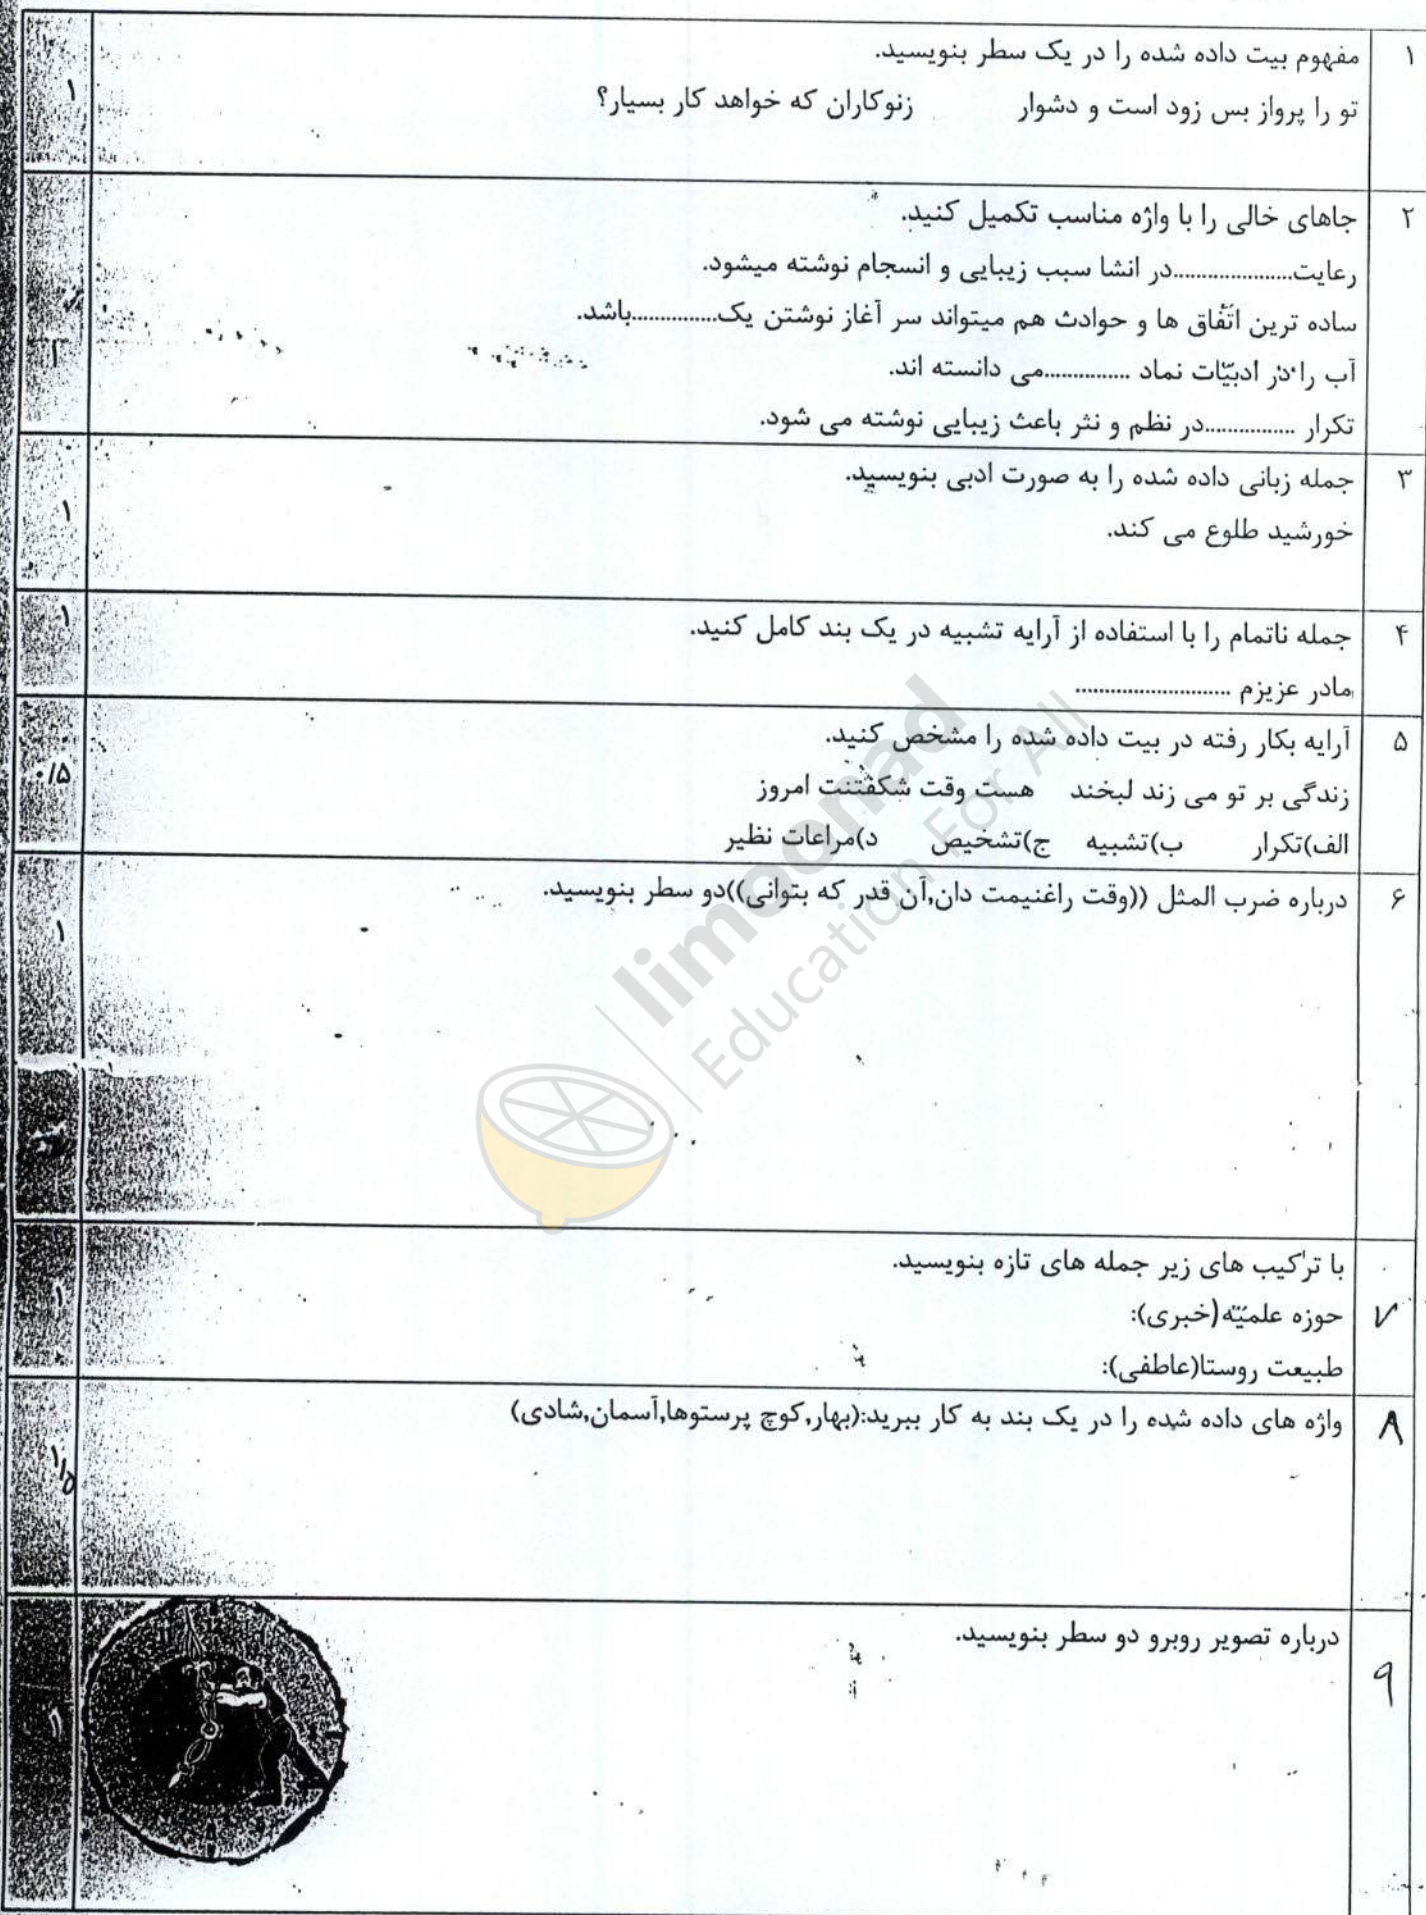 ۱
مفهوم بیت داده شده را در یک سطر بنویسید.
تو را پرواز بس زود است و دشوار زنوکاران که خواهد کار بسیار؟
۱
۲
جاهای خالی را با واژه مناسب تکمیل کنید.
رعایت.....................در انشا سبب زیبایی و انسجام نوشته میشود.
ساده ترین اتّفاق ها و حوادث هم میتواند سر آغاز نوشتن یک...............باشد.
آب را در ادبیّات نماد ...............می دانسته اند.
تکرار ................در نظم و نثر باعث زیبایی نوشته می شود.
۳
جمله زبانی داده شده را به صورت ادبی بنویسید.
خورشید طلوع می کند.
۱
۴
جمله ناتمام را با استفاده از آرایه تشبیه در یک بند کامل کنید.
مادر عزیزم ............................
۱
۵
آرایه بکار رفته در بیت داده شده را مشخص کنید.
زندگی بر تو می زند لبخند هست وقت شکفتنت امروز
الف)تکرار ب)تشبیه ج)تشخیص د)مراعات نظیر
۰/۵
۶
درباره ضرب المثل ((وقت راغنیمت دان,آن قدر که بتوانی))دو سطر بنویسید.
۱
با ترکیب های زیر جمله های تازه بنویسید.
۷
حوزه علمیّه(خبری):
طبیعت روستا(عاطفی):
۱
۸
واژه های داده شده را در یک بند به کار ببرید:(بهار,کوچ پرستوها,آسمان,شادی)
۱/۵
درباره تصویر روبرو دو سطر بنویسید.
۹
۱
limoonad
Education For All